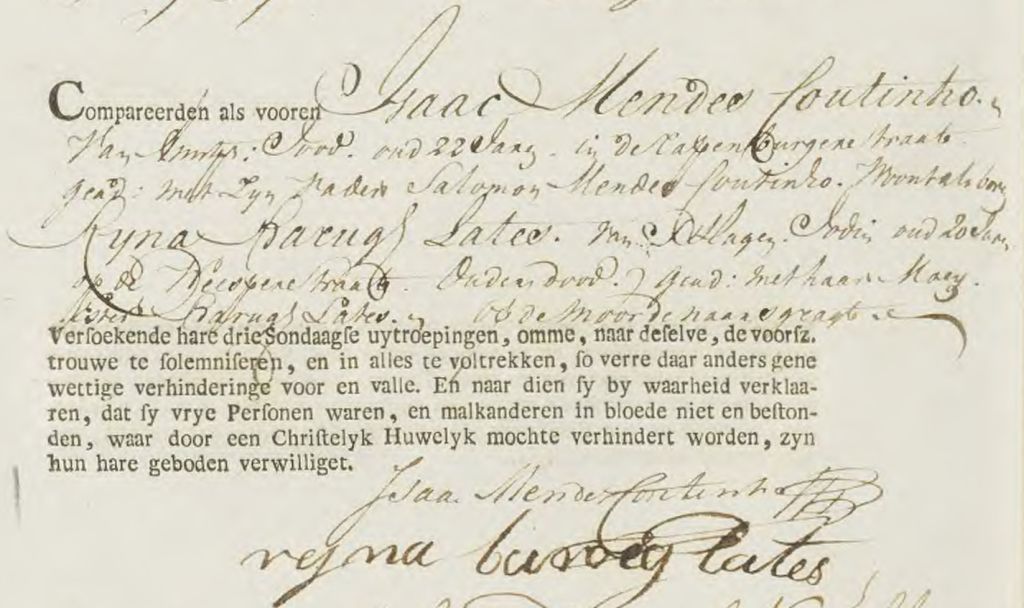 Compareerden als vooren Isaac Mendes Coutinho.
Van Amst: Jood. oud 22 Jaar. in de Rapenburgerstraat
geas: met zyn Vader Salomon Mendes Coutinho.
Ryna Barugh Lates. van Jodin oud 20 Jaar
op de Weesperstraat. Ouders dood. geas: met haar
Barugh Lates. op de
Versoekende hare drie Sondaagse uytroepingen, omme, naar deselve, de voorsz.
trouwe te solemniseren, en in alles te voltrekken, so verre daar anders gene
wettige verhinderinge voor en valle. En naar dien sy by waarheid verklaa-
ren, dat sy vrye Personen waren, en malkanderen in bloede niet en beston-
den, waar door een Christelyk Huwelyk mochte verhindert worden, zyn
hun hare geboden verwilliget.
Isaac Mendes Coutinho
reyna barug lates